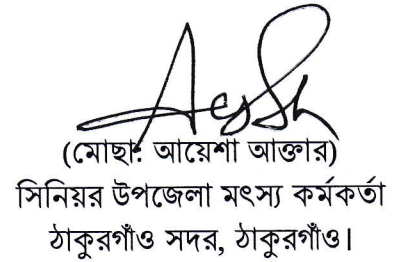 (মোছা: আয়েশা আক্তার)
সিনিয়র উপজেলা মৎস্য কর্মকর্তা
ঠাকুরগাঁও সদর, ঠাকুরগাঁও।